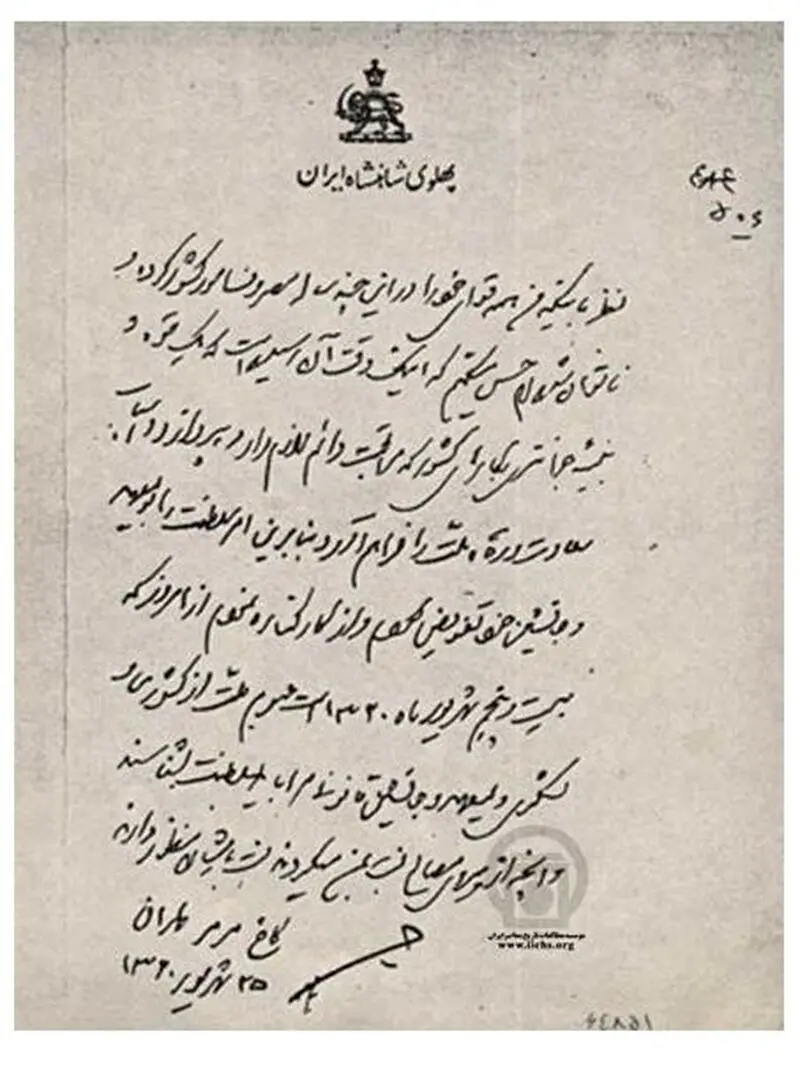 پهلوی شاهنشاه ایران
نظر باینکه من همه قوای خود را در این چند ساله مصروف امور کشور کرده و
ناتوان شده‌ام حس میکنم که اینک وقت آن رسیده است که یک قوه و
بنیه جوانتری بکارهای کشور که مراقبت دائم لازم دارد بپردازد و اسباب
سعادت و رفاه ملت را فراهم آورد بنابراین امور سلطنت را بولیعهد
و جانشین خود تفویض کردم و از کار کناره نمودم از امروز که
بیست و پنجم شهریور ماه ۱۳۲۰ است عموم ملت از کشوری و
لشکری ولیعهد و جانشین قانونی مرا باید بسلطنت بشناسند
و آنچه از پیروی مصالح نسبت بمن میکردند نسبت بایشان منظور دارند
کاخ مرمر تهران
۲۵ شهریور ۱۳۲۰
موسسه مطالعات تاریخ معاصر ایران
www.iichs.org